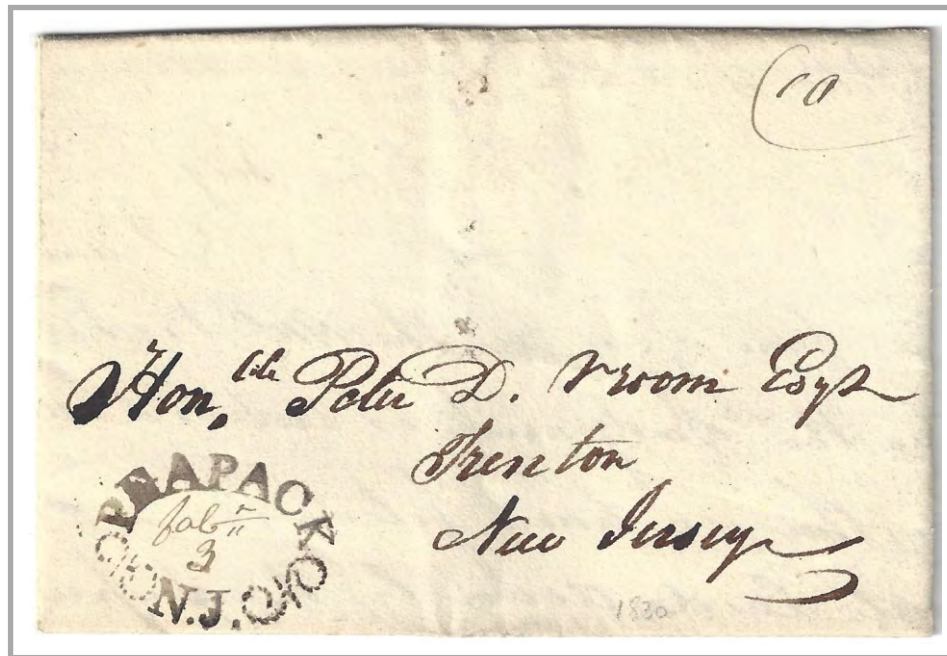 10
Hon,ble Peter D. Vroom Esqr
Trenton
New Jersey
PEAPACK
Feb
3
N.J.
1830